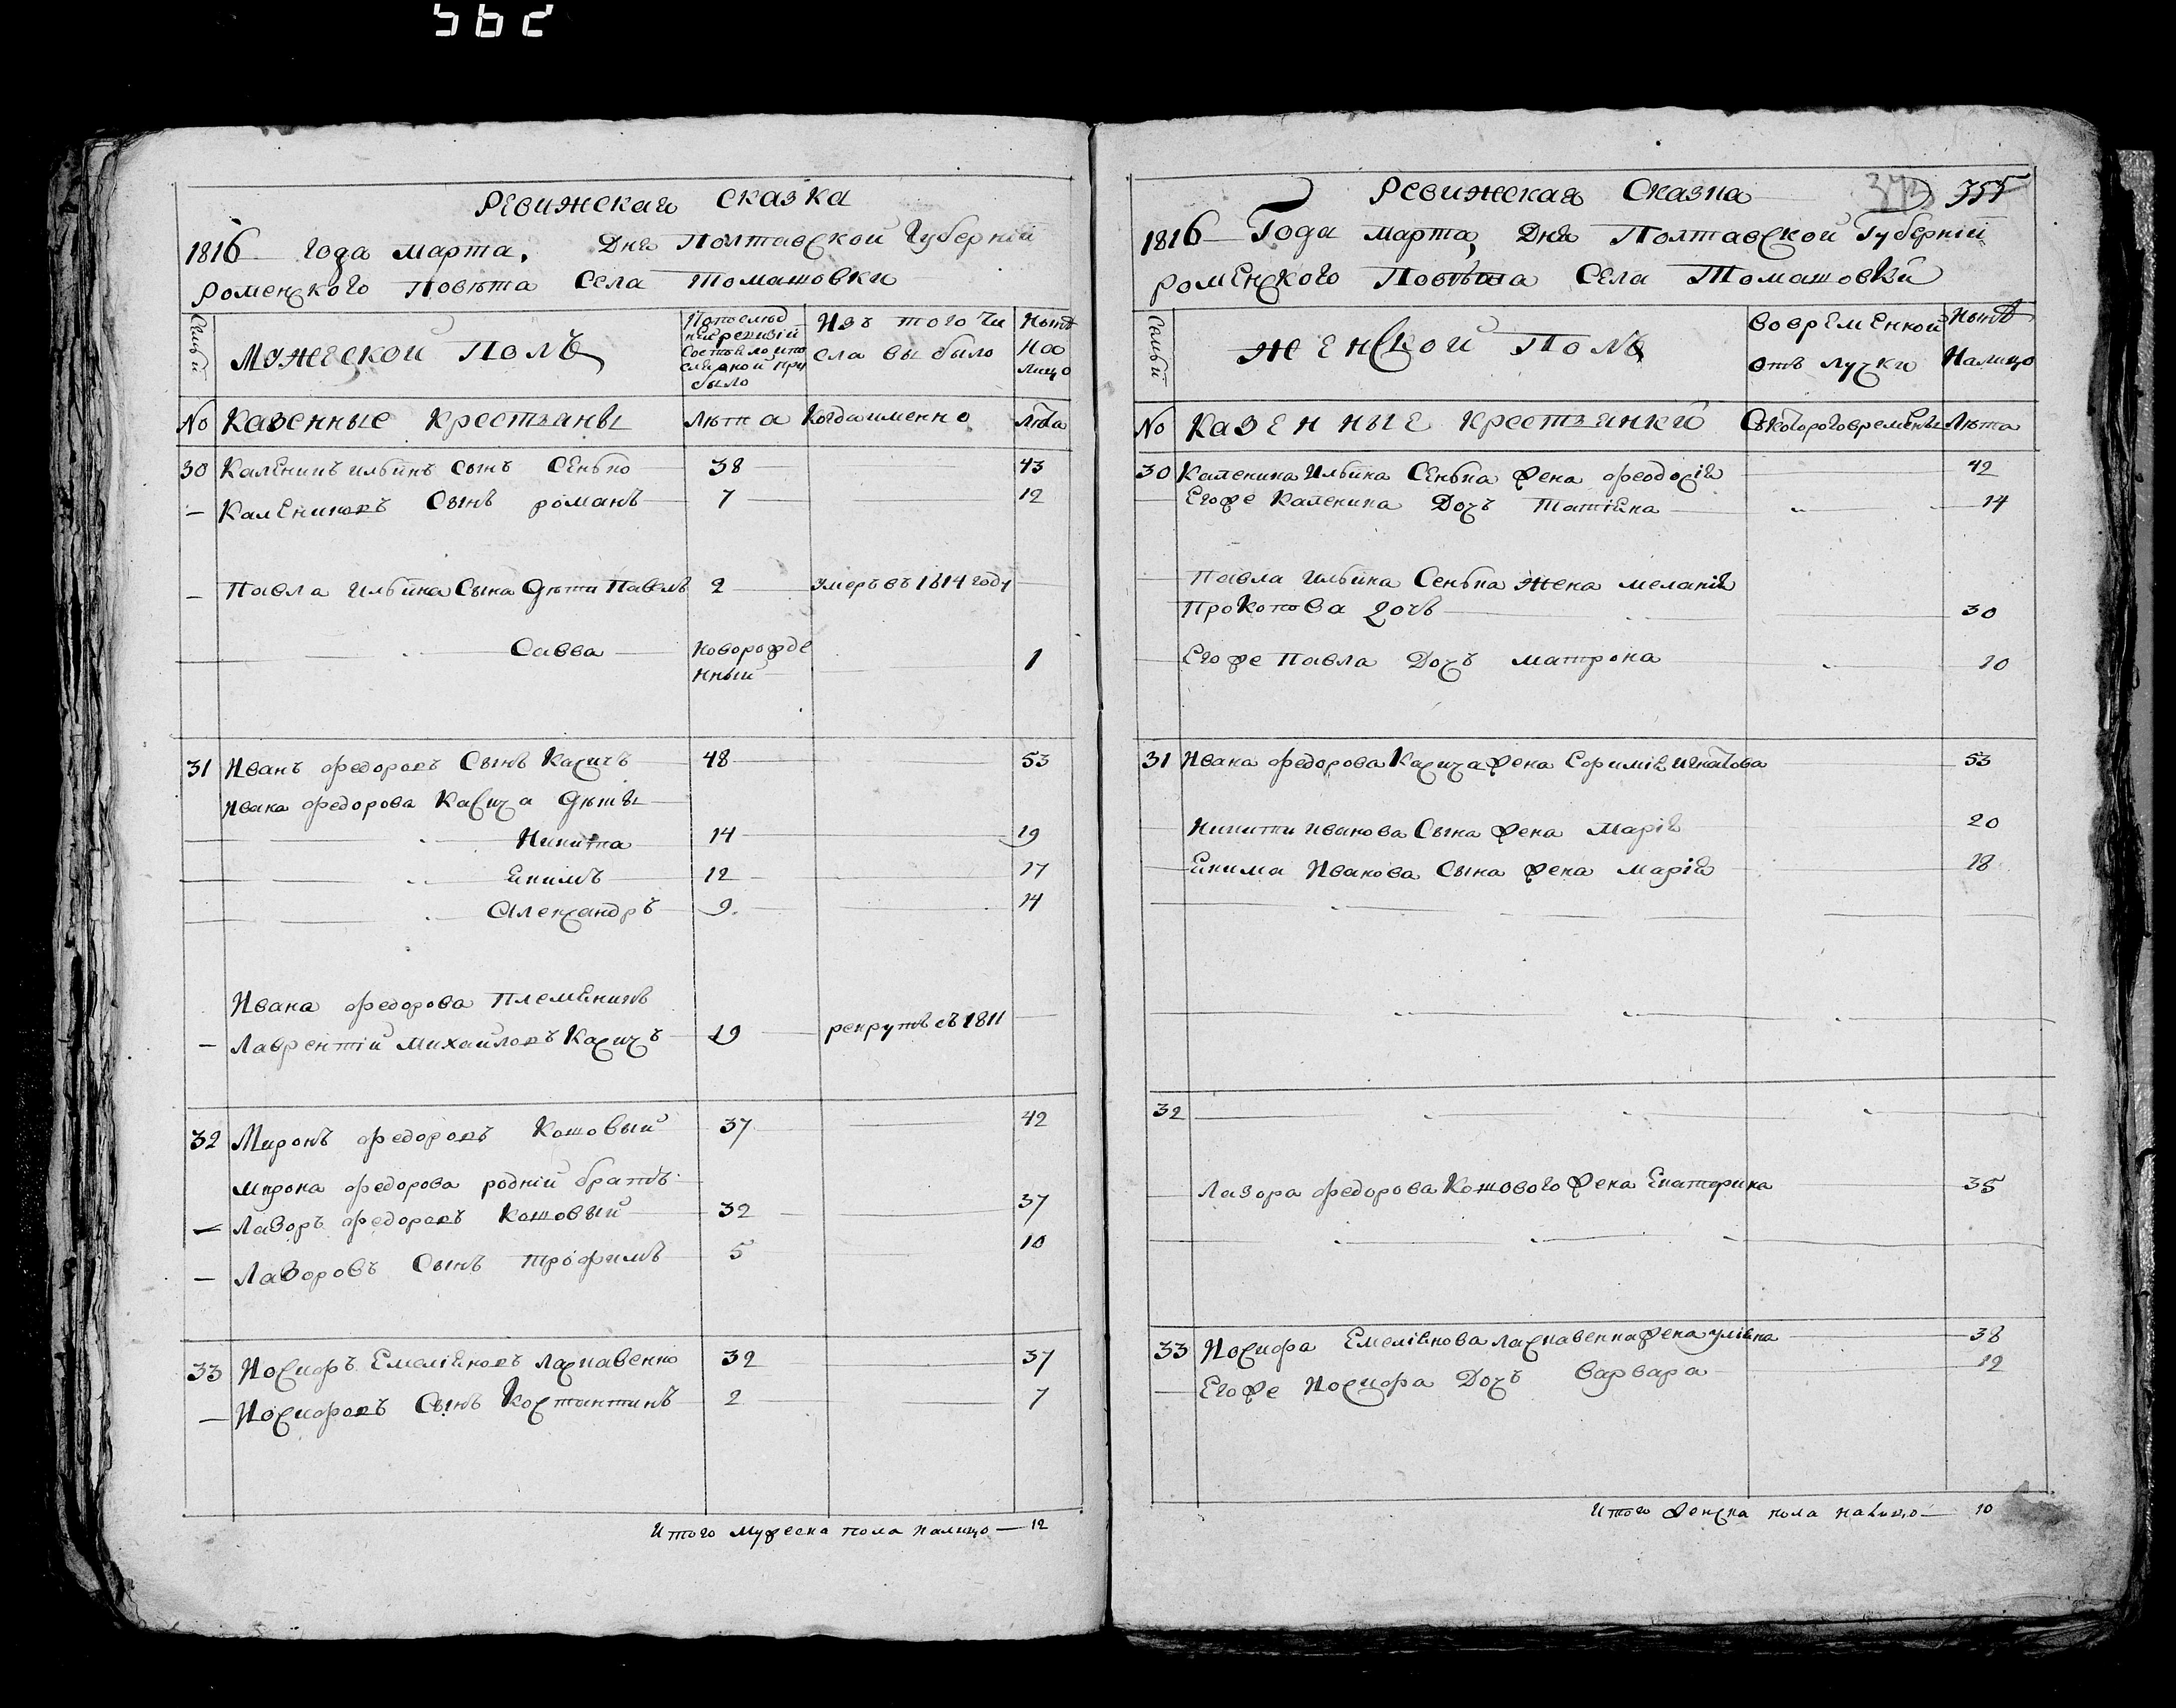 562
Ревижская сказка
1816 года марта, Дня Полтавской Губерніи
роменского повѣта Села Томашовки
Семьи
Мужеской Полъ
По последней ревизій состояло и после оной прибыло
Изъ того числа выбыло
Нынѣ на лицо
No Казенные Крестьяны Лѣта Когда именно Лѣта
30 Каленикъ ильинъ сынъ Сенько 38 43
Калениковъ Сынъ романъ 7 12
Павла Ильина Сына дѣти Павелъ 2 умеръ въ 1814 году
Савва новорожденный 1
31 Иванъ федоровъ Сынъ Касичъ 48 53
Ивана федорова Касича дѣти
Никита 14 19
Екимъ 12 17
Александръ 9 14
Ивана федорова племеникъ
Лаврентій михайловъ Касичъ 19 рекрутъ съ 1811
32 Миронъ федоровъ Кошовый 37 42
мирона федорова родній братъ
Лазоръ федоровъ Кошовый 32 37
Лазоровъ Сынъ трофимъ 5 10
33 Иосифъ Емеліяновъ ласкавенко 32 37
Иосифовъ Сынъ Костантинъ 2 7
Итого мужеска пола налицо — 12
Ревижская Сказка 355
1816 Года марта, Дня Полтавской Губерніи
роменского Повѣта Села Томашовки
Семьи
Женской Полъ
Во временной отъ лучки
Нынѣ Налицо
No Казенные крестьянки Съ которого времены Лѣта
30 Каленика Ильина Сенька жена феодосія 42
Егоже Каленика Дочъ Татіяна 14
Павла Ильина Сенька жена меланія
Прокопова дочь 30
Егоже Павла Дочъ матрона 10
31 Ивана федорова Касича жена Ефимія игнатова 53
Никити иванова Сына жена Марія 20
Екима Иванова Сына жена марія 18
32
Лазора федорова Кошового жена Екатерина 35
33 Иосифа Емеліянова ласкавенка жена уліяна 38
Егоже Иосифа Дочъ Варвара 12
Итого женска пола налицо — 10